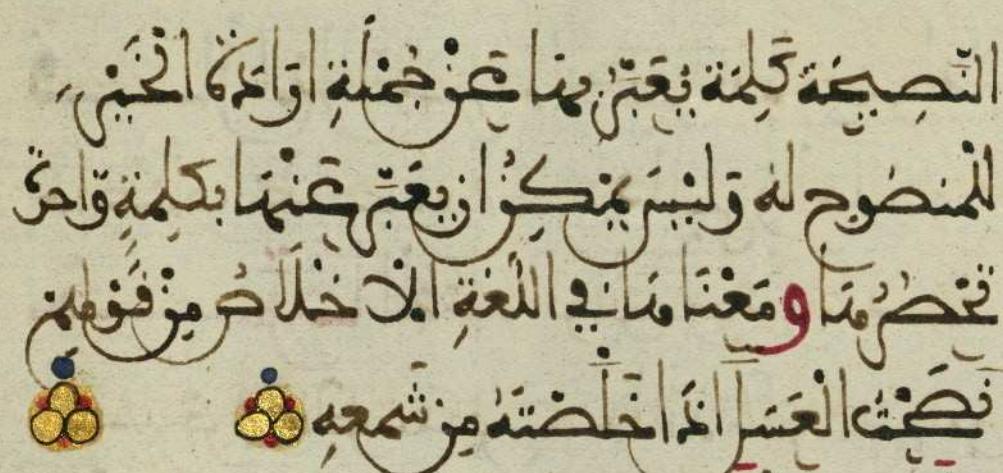 النَّصِيحَة كَلِمَة يُعَبَّرُ بِهَا عَنْ جُمْلَةِ ارَادَة الْخَيْرِ
لِلْمَنصُوحِ لَه وَلَيْسَ يُمْكِنُ ان يُعَبَّر عَنْهَا بكلِمةٍ وَاحِدَة
تَحْصُرُهَا وَمَعْنَاهَا في اللّغةِ الاخْلَاصُ مِنْ قَوْلِهِمْ
نَصَحْتُ الْعَسَل اذَا خَلَّصْتَهُ مِن شَمعِهِ